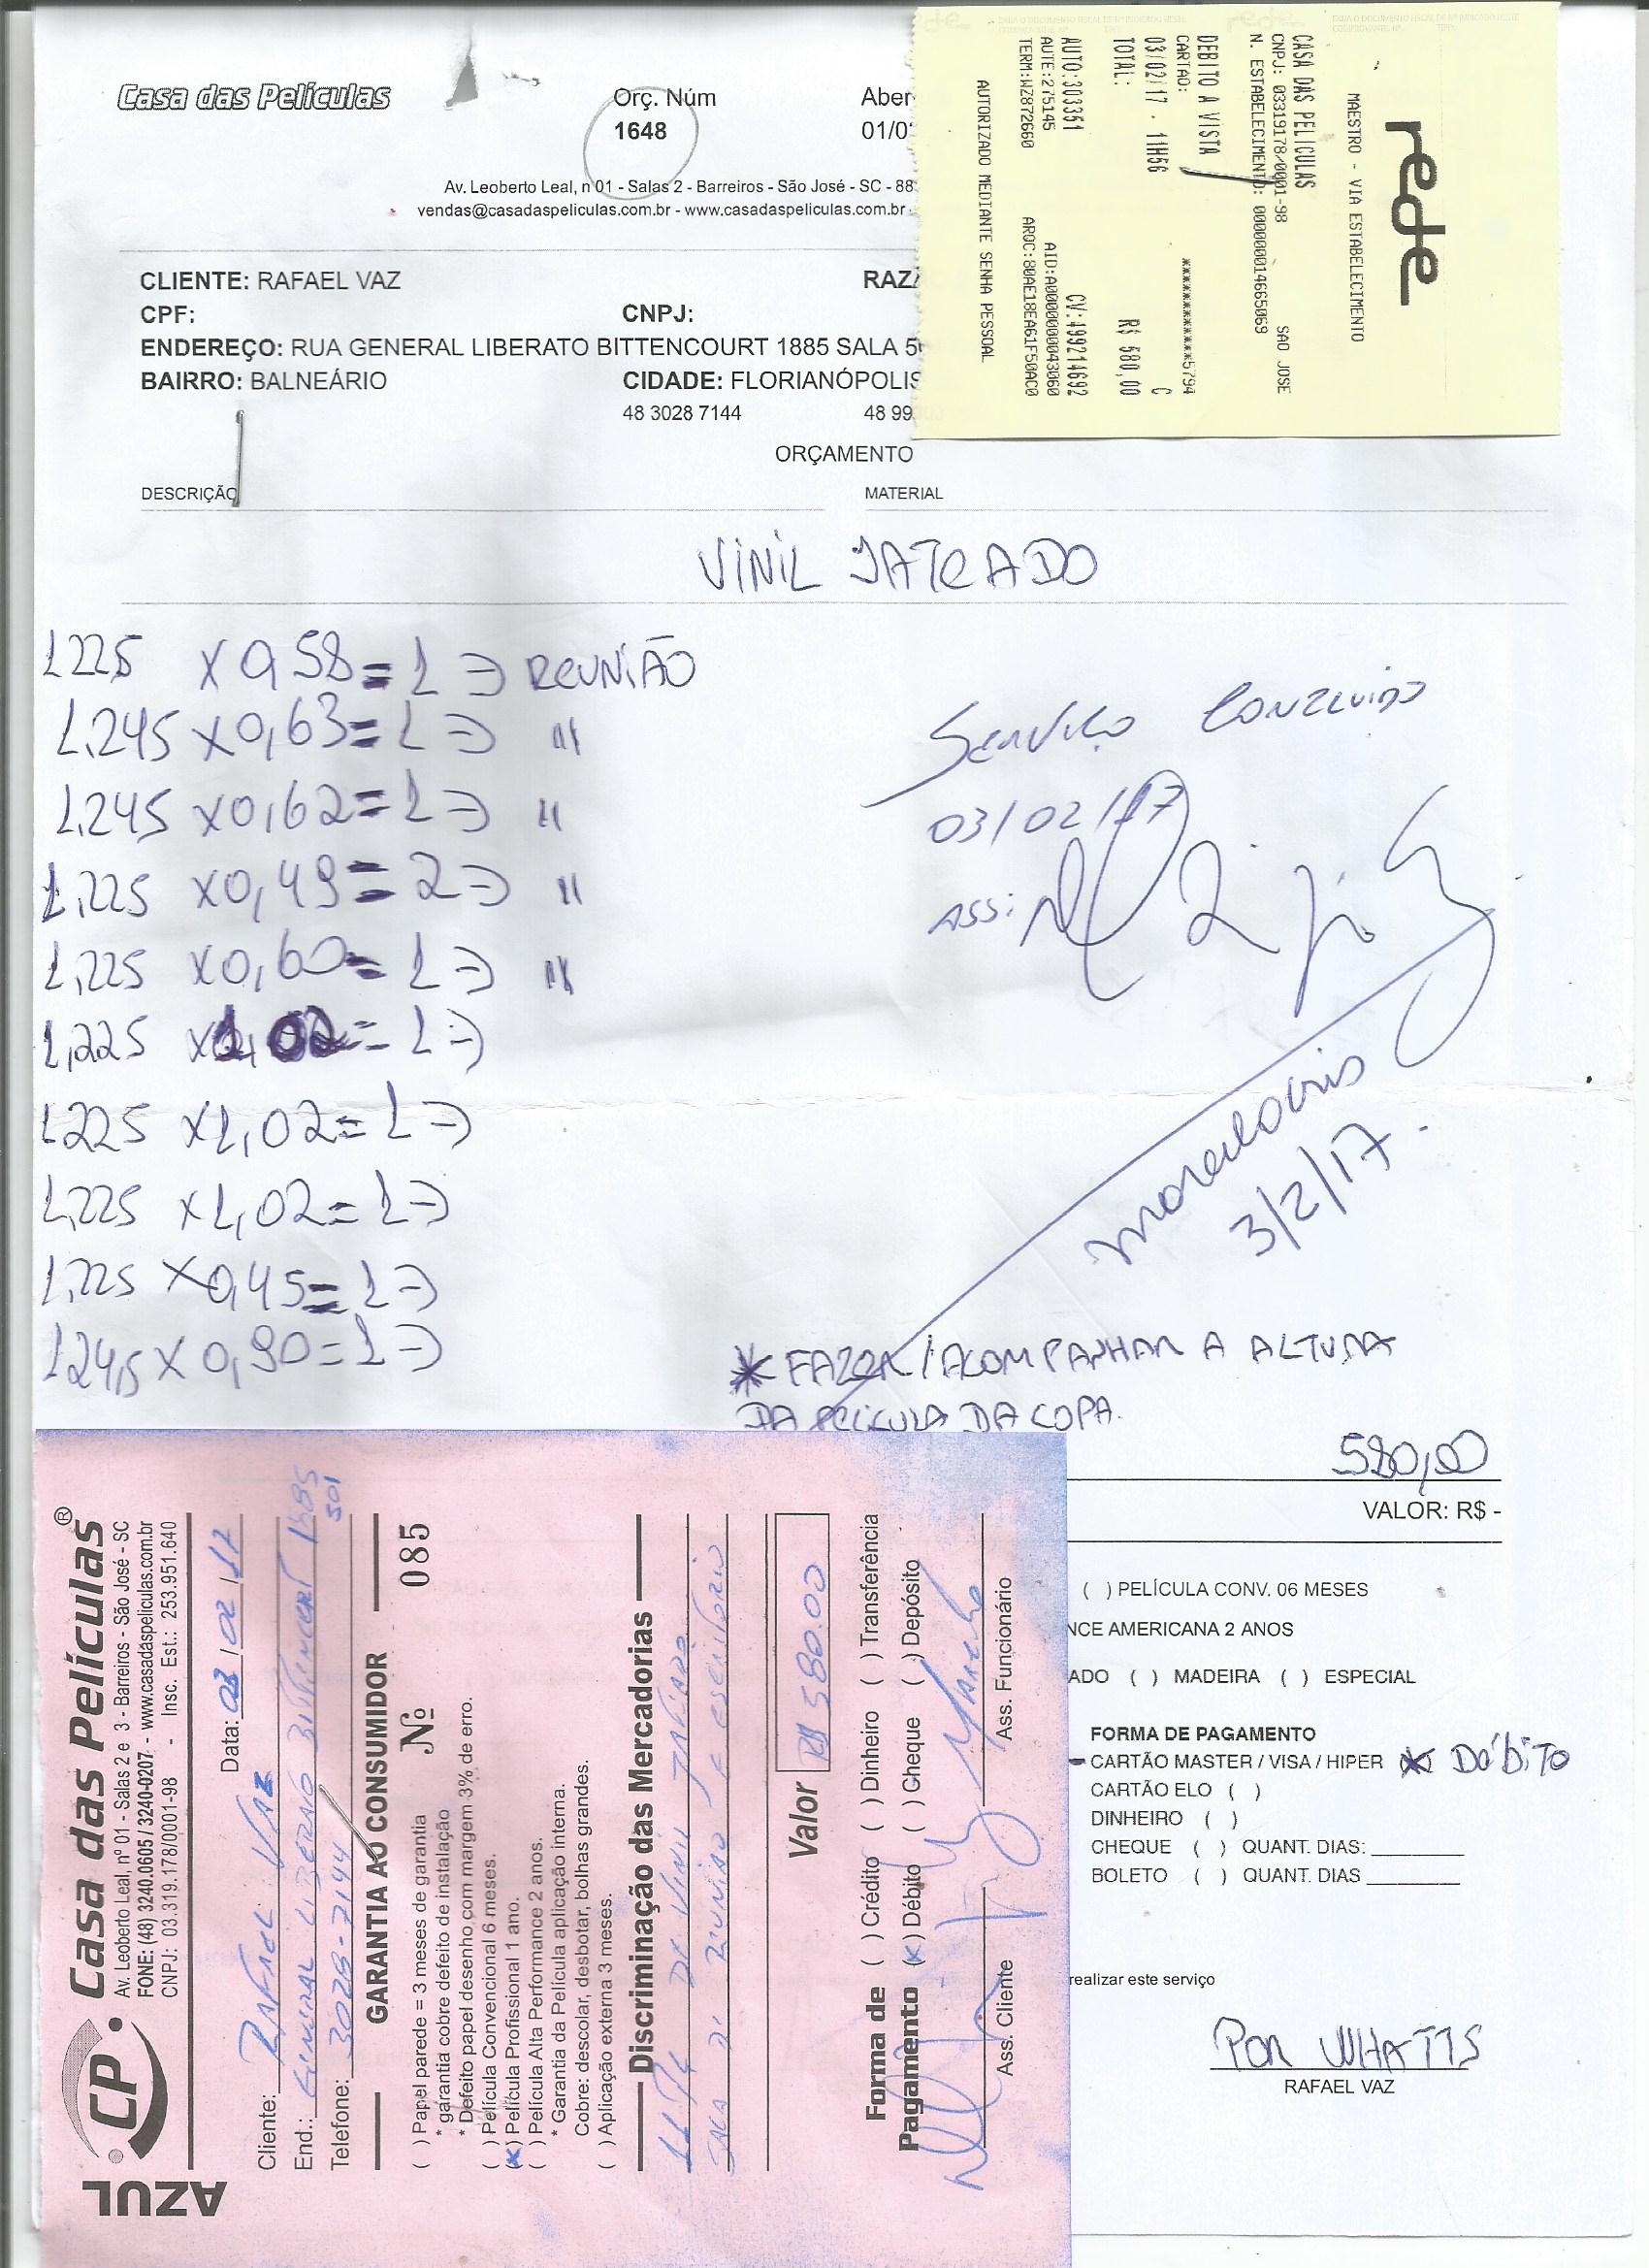 Casa das Películas
Orç. Núm
1648
Aber
01/0
Av. Leoberto Leal, n 01 - Salas 2 - Barreiros - São José - SC - 88
vendas@casadaspeliculas.com.br - www.casadaspeliculas.com.br -
CLIENTE: RAFAEL VAZ
RAZÃ
CPF:
CNPJ:
ENDEREÇO: RUA GENERAL LIBERATO BITTENCOURT 1885 SALA 50
BAIRRO: BALNEÁRIO
CIDADE: FLORIANÓPOLIS
48 3028 7144
48 99
ORÇAMENTO
DESCRIÇÃO
MATERIAL
rede
MAESTRO - VIA ESTABELECIMENTO
CASA DAS PELICULAS
CNPJ: 03319178/0001-98 SAO JOSE
N. ESTABELECIMENTO: 000000014665069
DEBITO A VISTA
CARTAO: ************5794
03/02/17 - 11H56 C
TOTAL: R$ 580,00
AUTO:303351 CV:499214692
AUTE:275145 AID:A0000000043060
TERM:WZ872660 ARQC:80AE18EA61F50AC0
AUTORIZADO MEDIANTE SENHA PESSOAL
VINIL JATEADO
1225 x 0,58 = 1 => REUNIÃO
1,245 x 0,63 = 1 => "
1,245 x 0,62 = 1 => "
1,225 x 0,49 = 2 => "
1,225 x 0,60 = 1 => "
1,225 x 1,02 = 1 =>
1225 x 1,02 = 1 =>
1,225 x 1,02 = 1 =>
1,225 x 0,45 = 1 =>
1245 x 0,90 = 1 =>
SERVIÇO CONCLUIDO
03/02/17
ASS:
3/2/17.
* FAZER / ACOMPANHAR A ALTURA
DA PELÍCULA DA COPA.
580,00
VALOR: R$ -
( ) PELÍCULA CONV. 06 MESES
NCE AMERICANA 2 ANOS
ADO ( ) MADEIRA ( ) ESPECIAL
FORMA DE PAGAMENTO
CARTÃO MASTER / VISA / HIPER DÉBITO
CARTÃO ELO ( )
DINHEIRO ( )
CHEQUE ( ) QUANT. DIAS:
BOLETO ( ) QUANT. DIAS
realizar este serviço
POR WHATTS
RAFAEL VAZ
AZUL
CP
Casa das Películas®
Av. Leoberto Leal, nº 01 - Salas 2 e 3 - Barreiros - São José - SC
FONE: (48) 3240.0605 / 3240-0207 - www.casadaspeliculas.com.br
CNPJ: 03.319.178/0001-98 - Insc. Est.: 253.951.640
Data: 03/02/17
Cliente: RAFAEL VAZ
End.: GENERAL LIBERATO BITTENCOURT 1885
501
Telefone: 3028-7144
GARANTIA AO CONSUMIDOR
Nº 085
( ) Papel parede = 3 meses de garantia
* garantia cobre defeito de instalação
* Defeito papel desenho com margem 3% de erro.
( ) Película Convencional 6 meses.
(x) Película Profissional 1 ano.
( ) Película Alta Performance 2 anos.
* Garantia da Película aplicação interna.
Cobre: descolar, desbotar, bolhas grandes.
( ) Aplicação externa 3 meses.
Discriminação das Mercadorias
DE VINIL JATEADO
SALA DE REUNIÃO E ESCRITÓRIO
Valor R$ 580.00
Forma de Pagamento
( ) Crédito ( ) Dinheiro ( ) Transferência
(x) Débito ( ) Cheque ( ) Depósito
Ass. Cliente
Ass. Funcionário